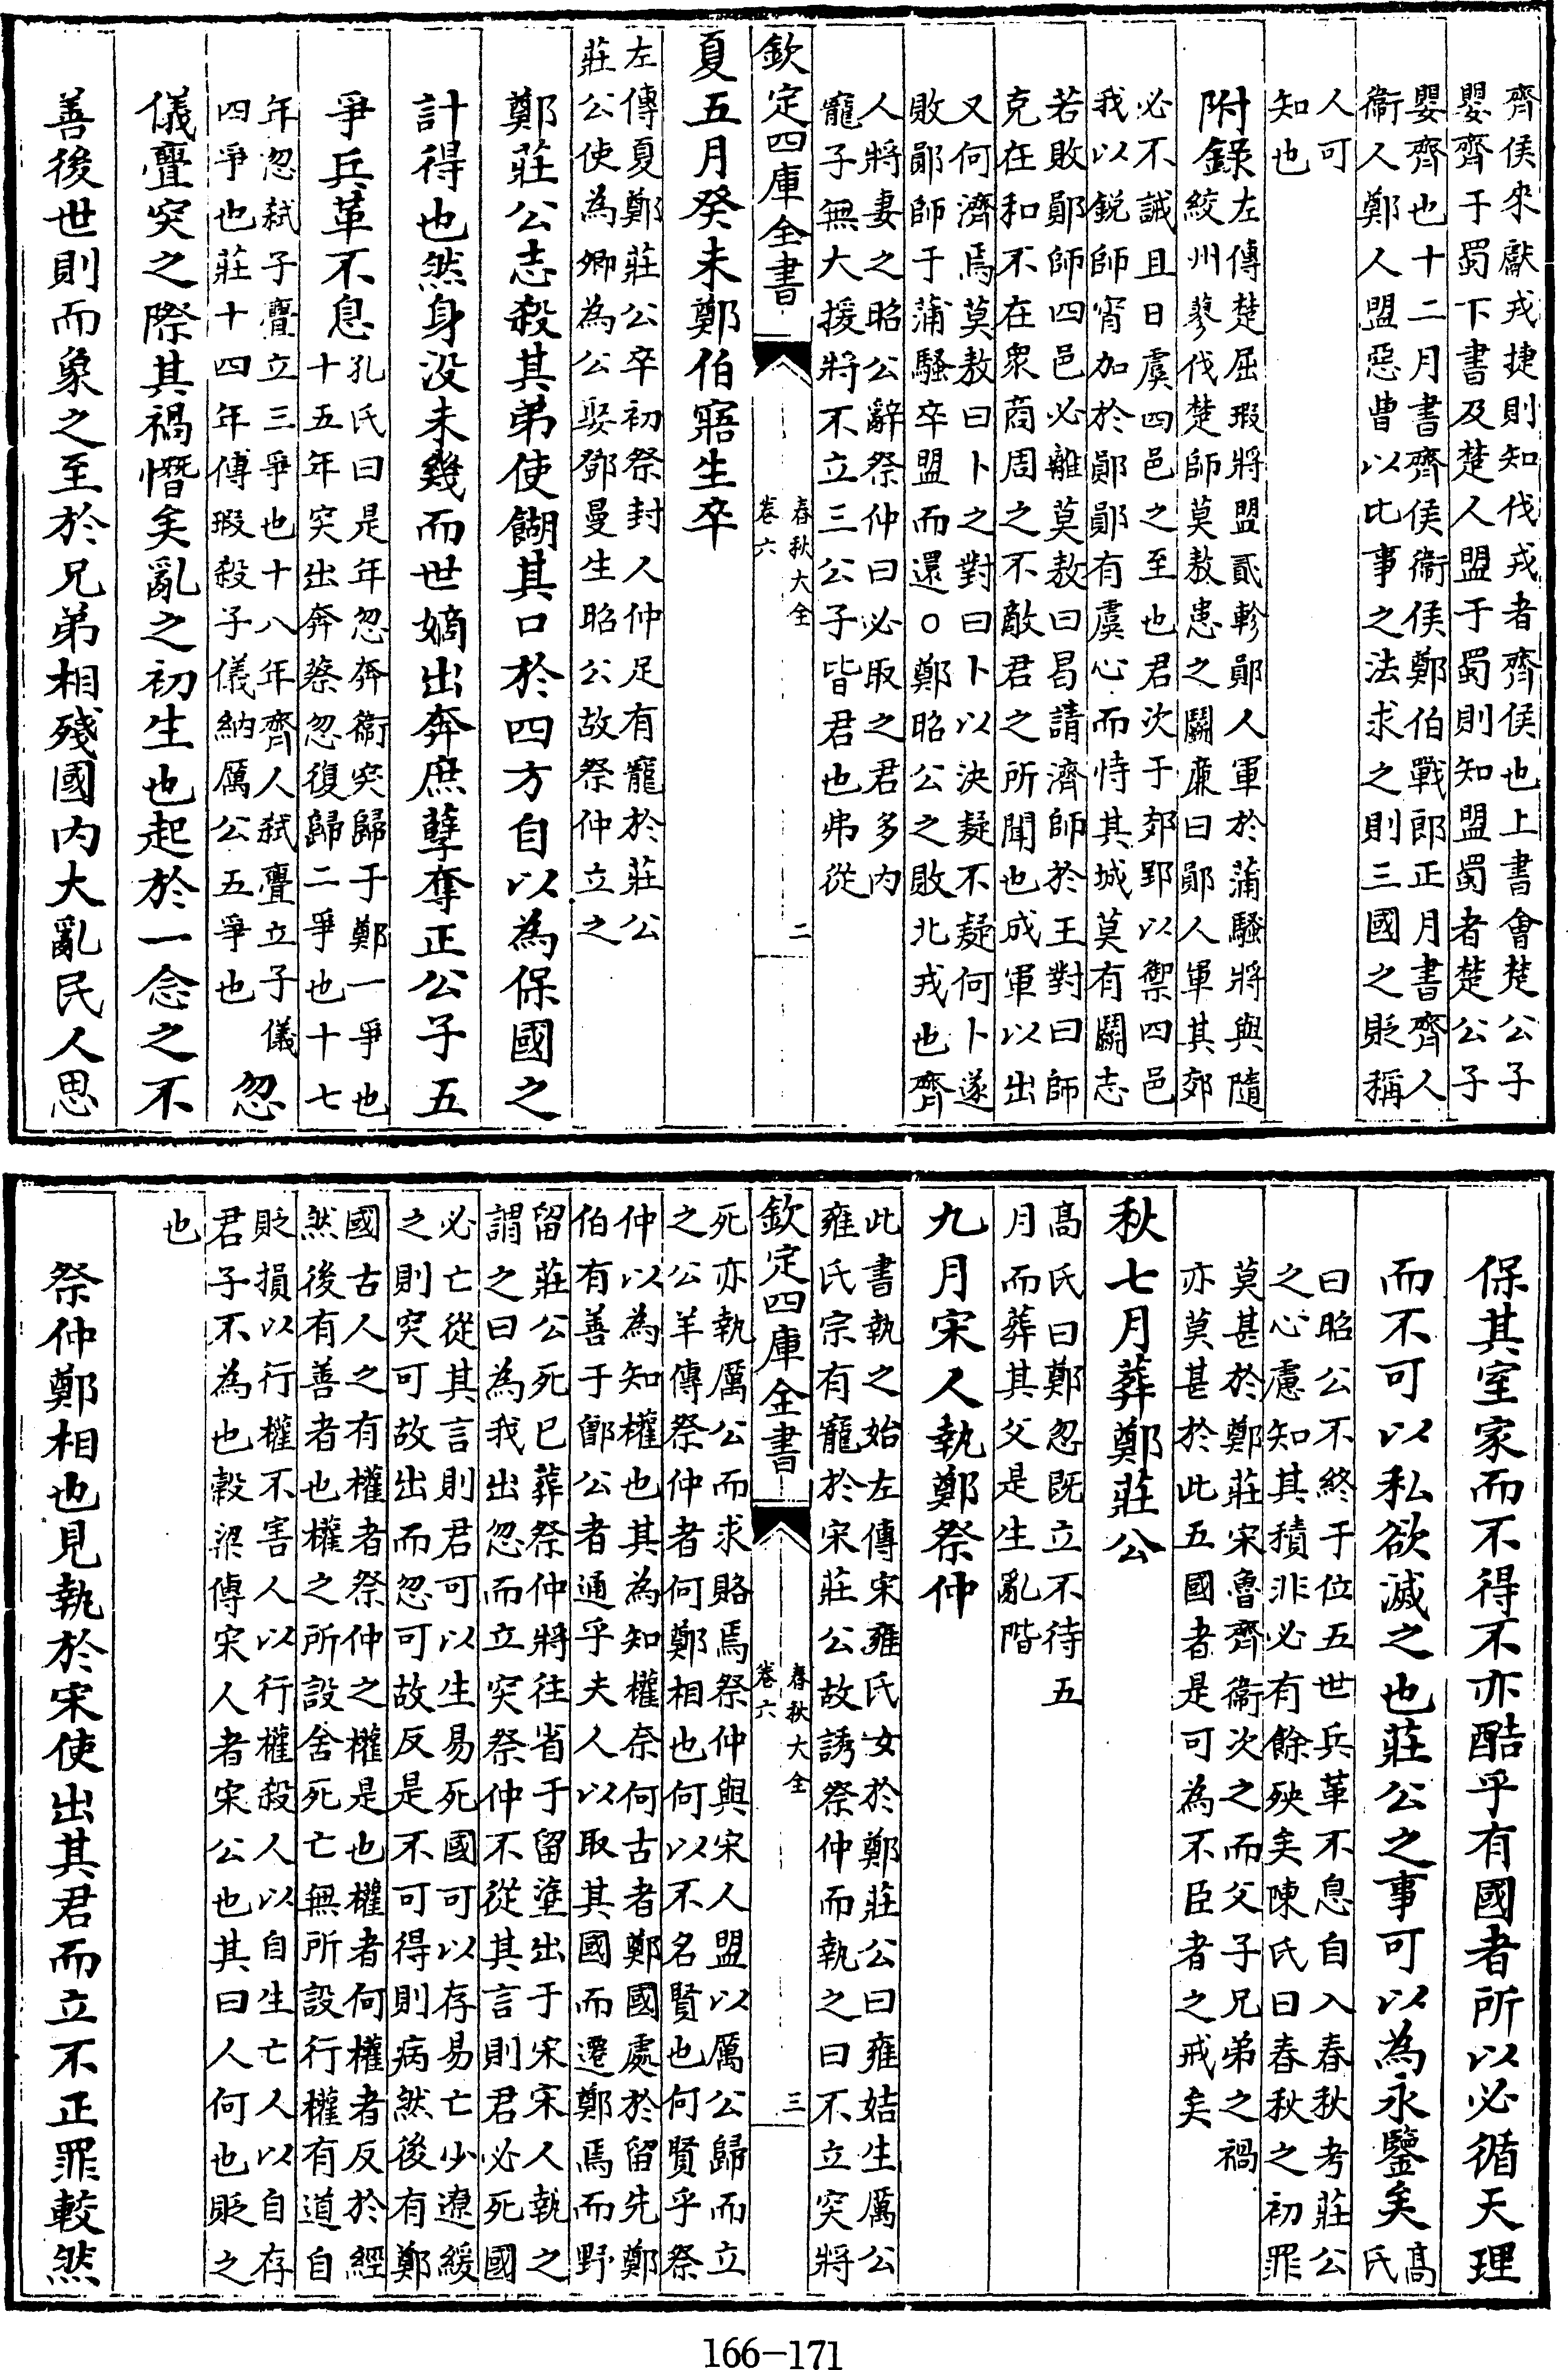 齊侯來獻戎捷則知伐戎者齊侯也上書會楚公子
嬰齊于蜀下書及楚人盟于蜀則知盟蜀者楚公子
嬰齊也十二月書齊侯衞侯鄭伯戰郎正月書齊人
衞人鄭人盟惡曹以比事之法求之則三國之貶稱
人可
知也
附錄左傳楚屈瑕將盟貳軫鄖人軍於蒲騷將與隨
絞州蓼伐楚師莫敖患之鬬亷曰鄖人軍其郊
必不誡且日虞四邑之至也君次于郊郢以禦四邑
我以銳師宵加於鄖鄖有虞心而恃其城莫有鬬志
若敗鄖師四邑必離莫敖曰曷請濟師於王對曰師
克在和不在衆商周之不敵君之所聞也成軍以出
又何濟焉莫敖曰卜之對曰卜以決疑不疑何卜遂
敗鄖師于蒲騷卒盟而還○鄭昭公之敗北戎也齊
人將妻之昭公辭祭仲曰必取之君多内
寵子無大援將不立三公子皆君也弗從
欽定四庫全書
春秋大全
卷六
二
夏五月癸未鄭伯寤生卒
左傳夏鄭莊公卒初祭封人仲足有寵於莊公
莊公使為卿為公娶鄧曼生昭公故祭仲立之
鄭莊公志殺其弟使餬其口於四方自以為保國之
計得也然身没未幾而世嫡出奔庶孽奪正公子五
爭兵革不息孔氏曰是年忽奔衞突歸于鄭一爭也
十五年突出奔蔡忽復歸二爭也十七
年忽弑子亹立三爭也十八年齊人弑亹立子儀
四爭也莊十四年傅瑕殺子儀納厲公五爭也忽
儀亹突之際其禍憯矣亂之初生也起於一念之不
善後世則而象之至於兄弟相殘國内大亂民人思
保其室家而不得不亦酷乎有國者所以必循天理
而不可以私欲滅之也莊公之事可以為永鑒矣高
氏
曰昭公不終于位五世兵革不息自入春秋考莊公
之心慮知其積非必有餘殃矣陳氏曰春秋之初罪
莫甚於鄭莊宋魯齊衞次之而父子兄弟之禍
亦莫甚於此五國者是可為不臣者之戒矣
秋七月葬鄭莊公
高氏曰鄭忽既立不待五
月而葬其父是生亂階
九月宋人執鄭祭仲
此書執之始左傳宋雍氏女於鄭莊公曰雍姞生厲公
雍氏宗有寵於宋莊公故誘祭仲而執之曰不立突將
欽定四庫全書
春秋大全
卷六
三
死亦執厲公而求賂焉祭仲與宋人盟以厲公歸而立
之公羊傳祭仲者何鄭相也何以不名賢也何賢乎祭
仲以為知權也其為知權奈何古者鄭國處於留先鄭
伯有善于鄶公者通乎夫人以取其國而遷鄭焉而野
留莊公死已葬祭仲將往省于留塗出于宋宋人執之
謂之曰為我出忽而立突祭仲不從其言則君必死國
必亡從其言則君可以生易死國可以存易亡少遼緩
之則突可故出而忽可故反是不可得則病然後有鄭
國古人之有權者祭仲之權是也權者何權者反於經
然後有善者也權之所設舍死亡無所設行權有道自
貶損以行權不害人以行權殺人以自生亡人以自存
君子不為也榖梁傳宋人者宋公也其曰人何也貶之
也
祭仲鄭相也見執於宋使出其君而立不正罪較然
166-171